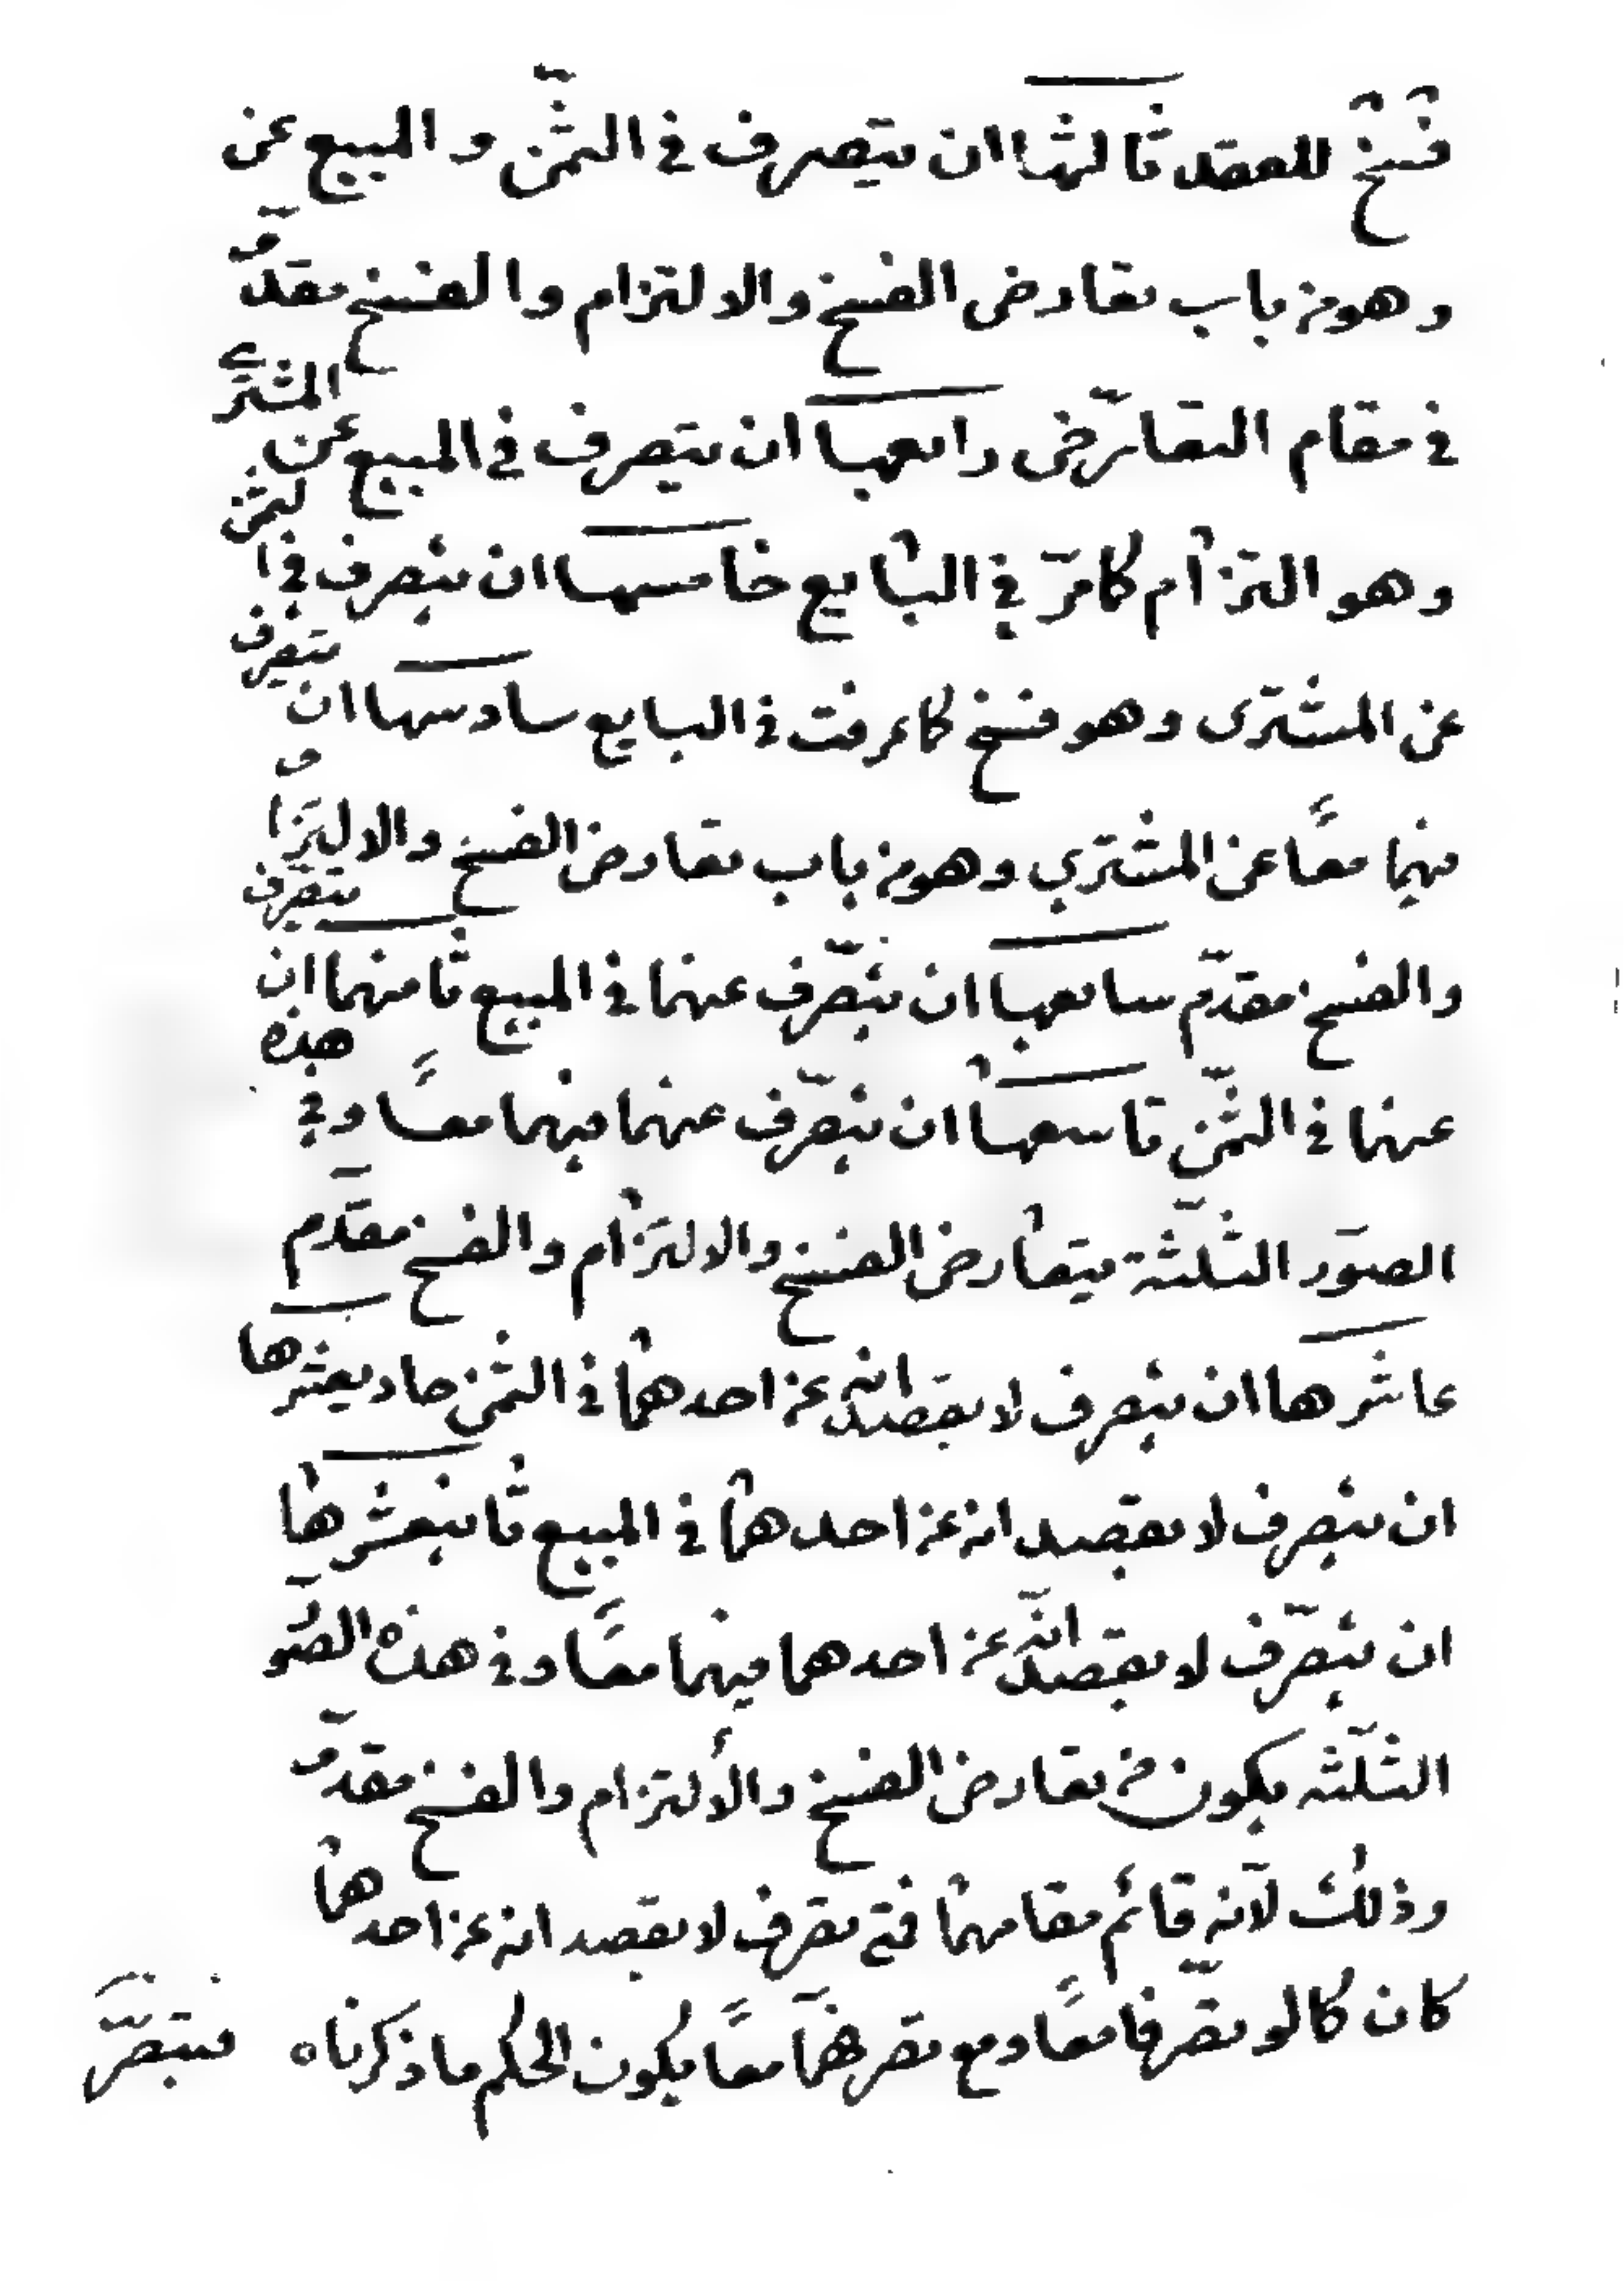 فسخ للعقد ثالثها ان يتصرف في الثمن و المبيع عن
و هو من باب تعارض الفسخ والالتزام والفسخ مقدّم
في مقام التعارض رابعها ان يتصرف في المبيع عن المشتري
و هو التزام كما مرّ في البايع خامسها ان يتصرف في الثمن
عن المشتري و هو فسخ كما عرفت في البايع سادسها ان يتصرف
فيهما معاً عن المشتري و هو من باب تعارض الفسخ والالتزام
والفسخ مقدّم سابعها ان يتصرّف عنهما في المبيع ثامنهما ان يتصرف
عنهما في الثمن تاسعها ان يتصرّف عنهما فيهما معاً وفي هذه
الصور الثلثة يتعارض الفسخ والالتزام والفسخ مقدّم
عاشرها ان يتصرف لا بقصد انه عن احدهما في الثمن حاديعشرها
ان يتصرف لا بقصد انه عن احدهما في المبيع ثانيعشرها
ان يتصرّف لا بقصد انّه عن احدهما فيهما معاً وفي هذه الصور
الثلثه يكون من تعارض الفسخ والألتزام والفسخ مقدّم
وذلك لأنه قائم مقامهما فتى تصرف لا بقصد انه عن احدهما
كان كما لو تصرّفا معاً و مع تصرفهما معاً يكون الحكم ما ذكرناه
فيتصرّ